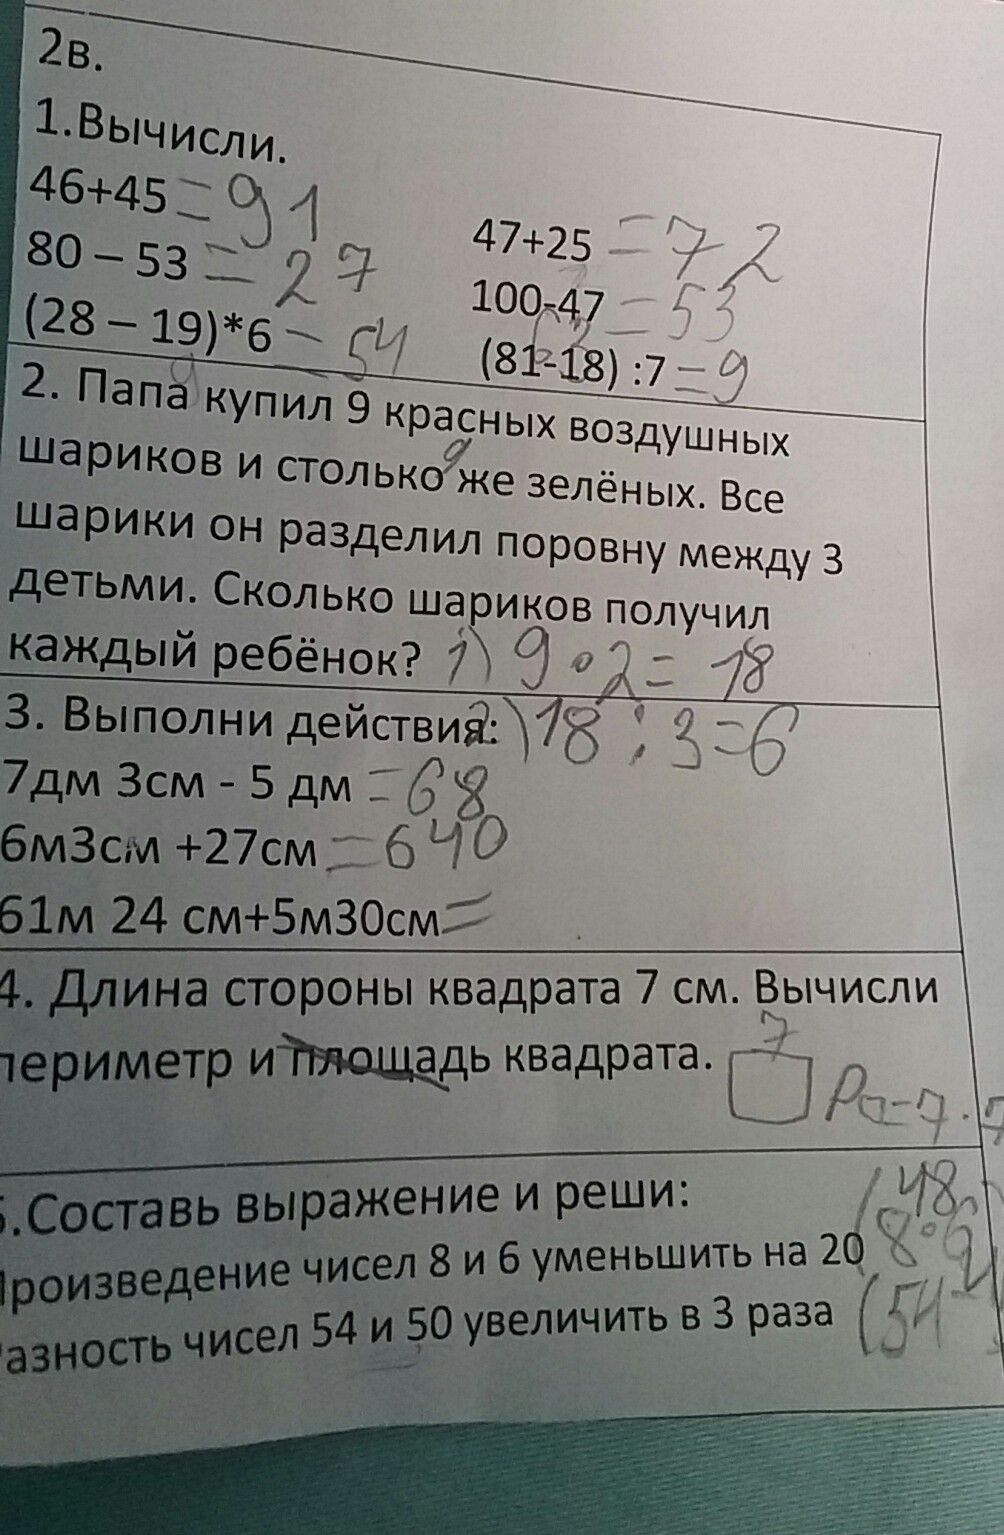 2в.
1.Вычисли.
46+45 = 91
47+25 = 72
80 – 53 = 27
100-47 = 53
63
(28 – 19)*6 = 54
(81-18) :7 = 9
9
2. Папа купил 9 красных воздушных
9
шариков и столько же зелёных. Все
шарики он разделил поровну между 3
детьми. Сколько шариков получил
каждый ребёнок? 1) 9 · 2 = 18
3. Выполни действия: 2) 18 : 3 = 6
7дм 3см - 5 дм = 68
6м3см +27см = 640
61м 24 см+5м30см =
4. Длина стороны квадрата 7 см. Вычисли
7
периметр и площадь квадрата.
P□=7·7
5.Составь выражение и реши:
(48
Произведение чисел 8 и 6 уменьшить на 20 8·6)
Разность чисел 54 и 50 увеличить в 3 раза (54 -